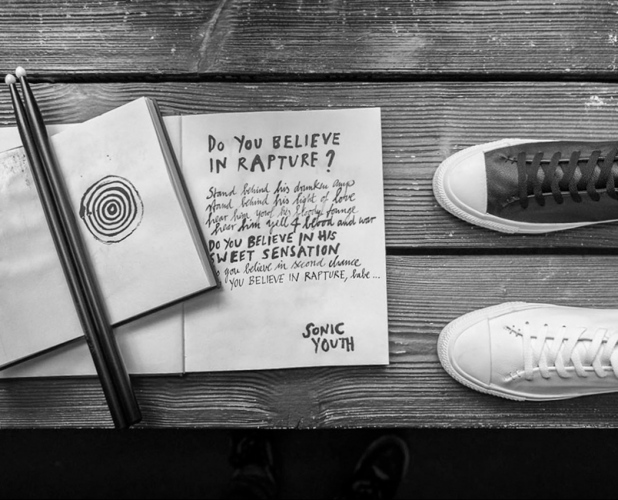 DO YOU BELIEVE
IN RAPTURE?
Stand behind his drunken
stand behind his light of love
hear him his bloody
hear him yell 4 blood and war
DO YOU BELIEVE IN HIS
SWEET SENSATION
you believe in second chance
YOU BELIEVE IN RAPTURE, babe ...
SONIC
YOUTH